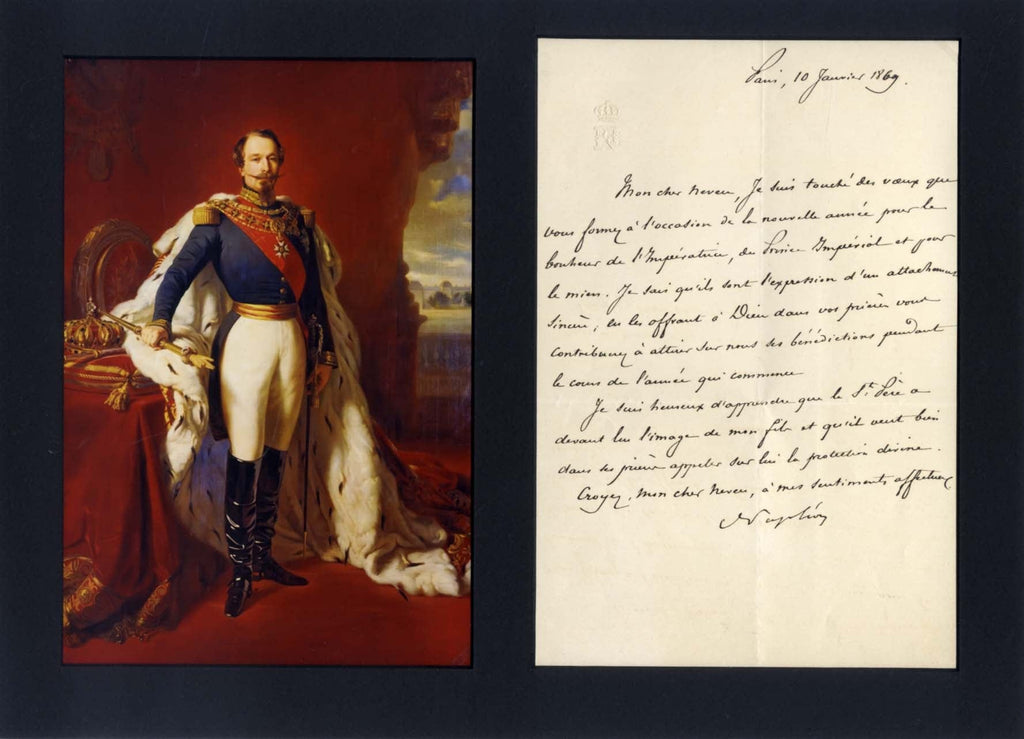 Paris, 10 Janvier 1869.
Mon cher Neveu, Je suis touché des vœux que
vous formez à l'occasion de la nouvelle année pour le
bonheur de l'Impératrice, du Prince Impérial et pour
le mien. Je sais qu'ils sont l'expression d'un attachement
sincère, en les offrant à Dieu dans vos prières vous
contribuez à attirer sur nous ses bénédictions pendant
le cours de l'année qui commence
Je suis heureux d'apprendre que le St. Père a
devant lui l'image de mon fils et qu'il veut bien
dans ses prières appeler sur lui la protection divine.
Croyez, mon cher Neveu, à mes sentiments affectueux
Napoléon